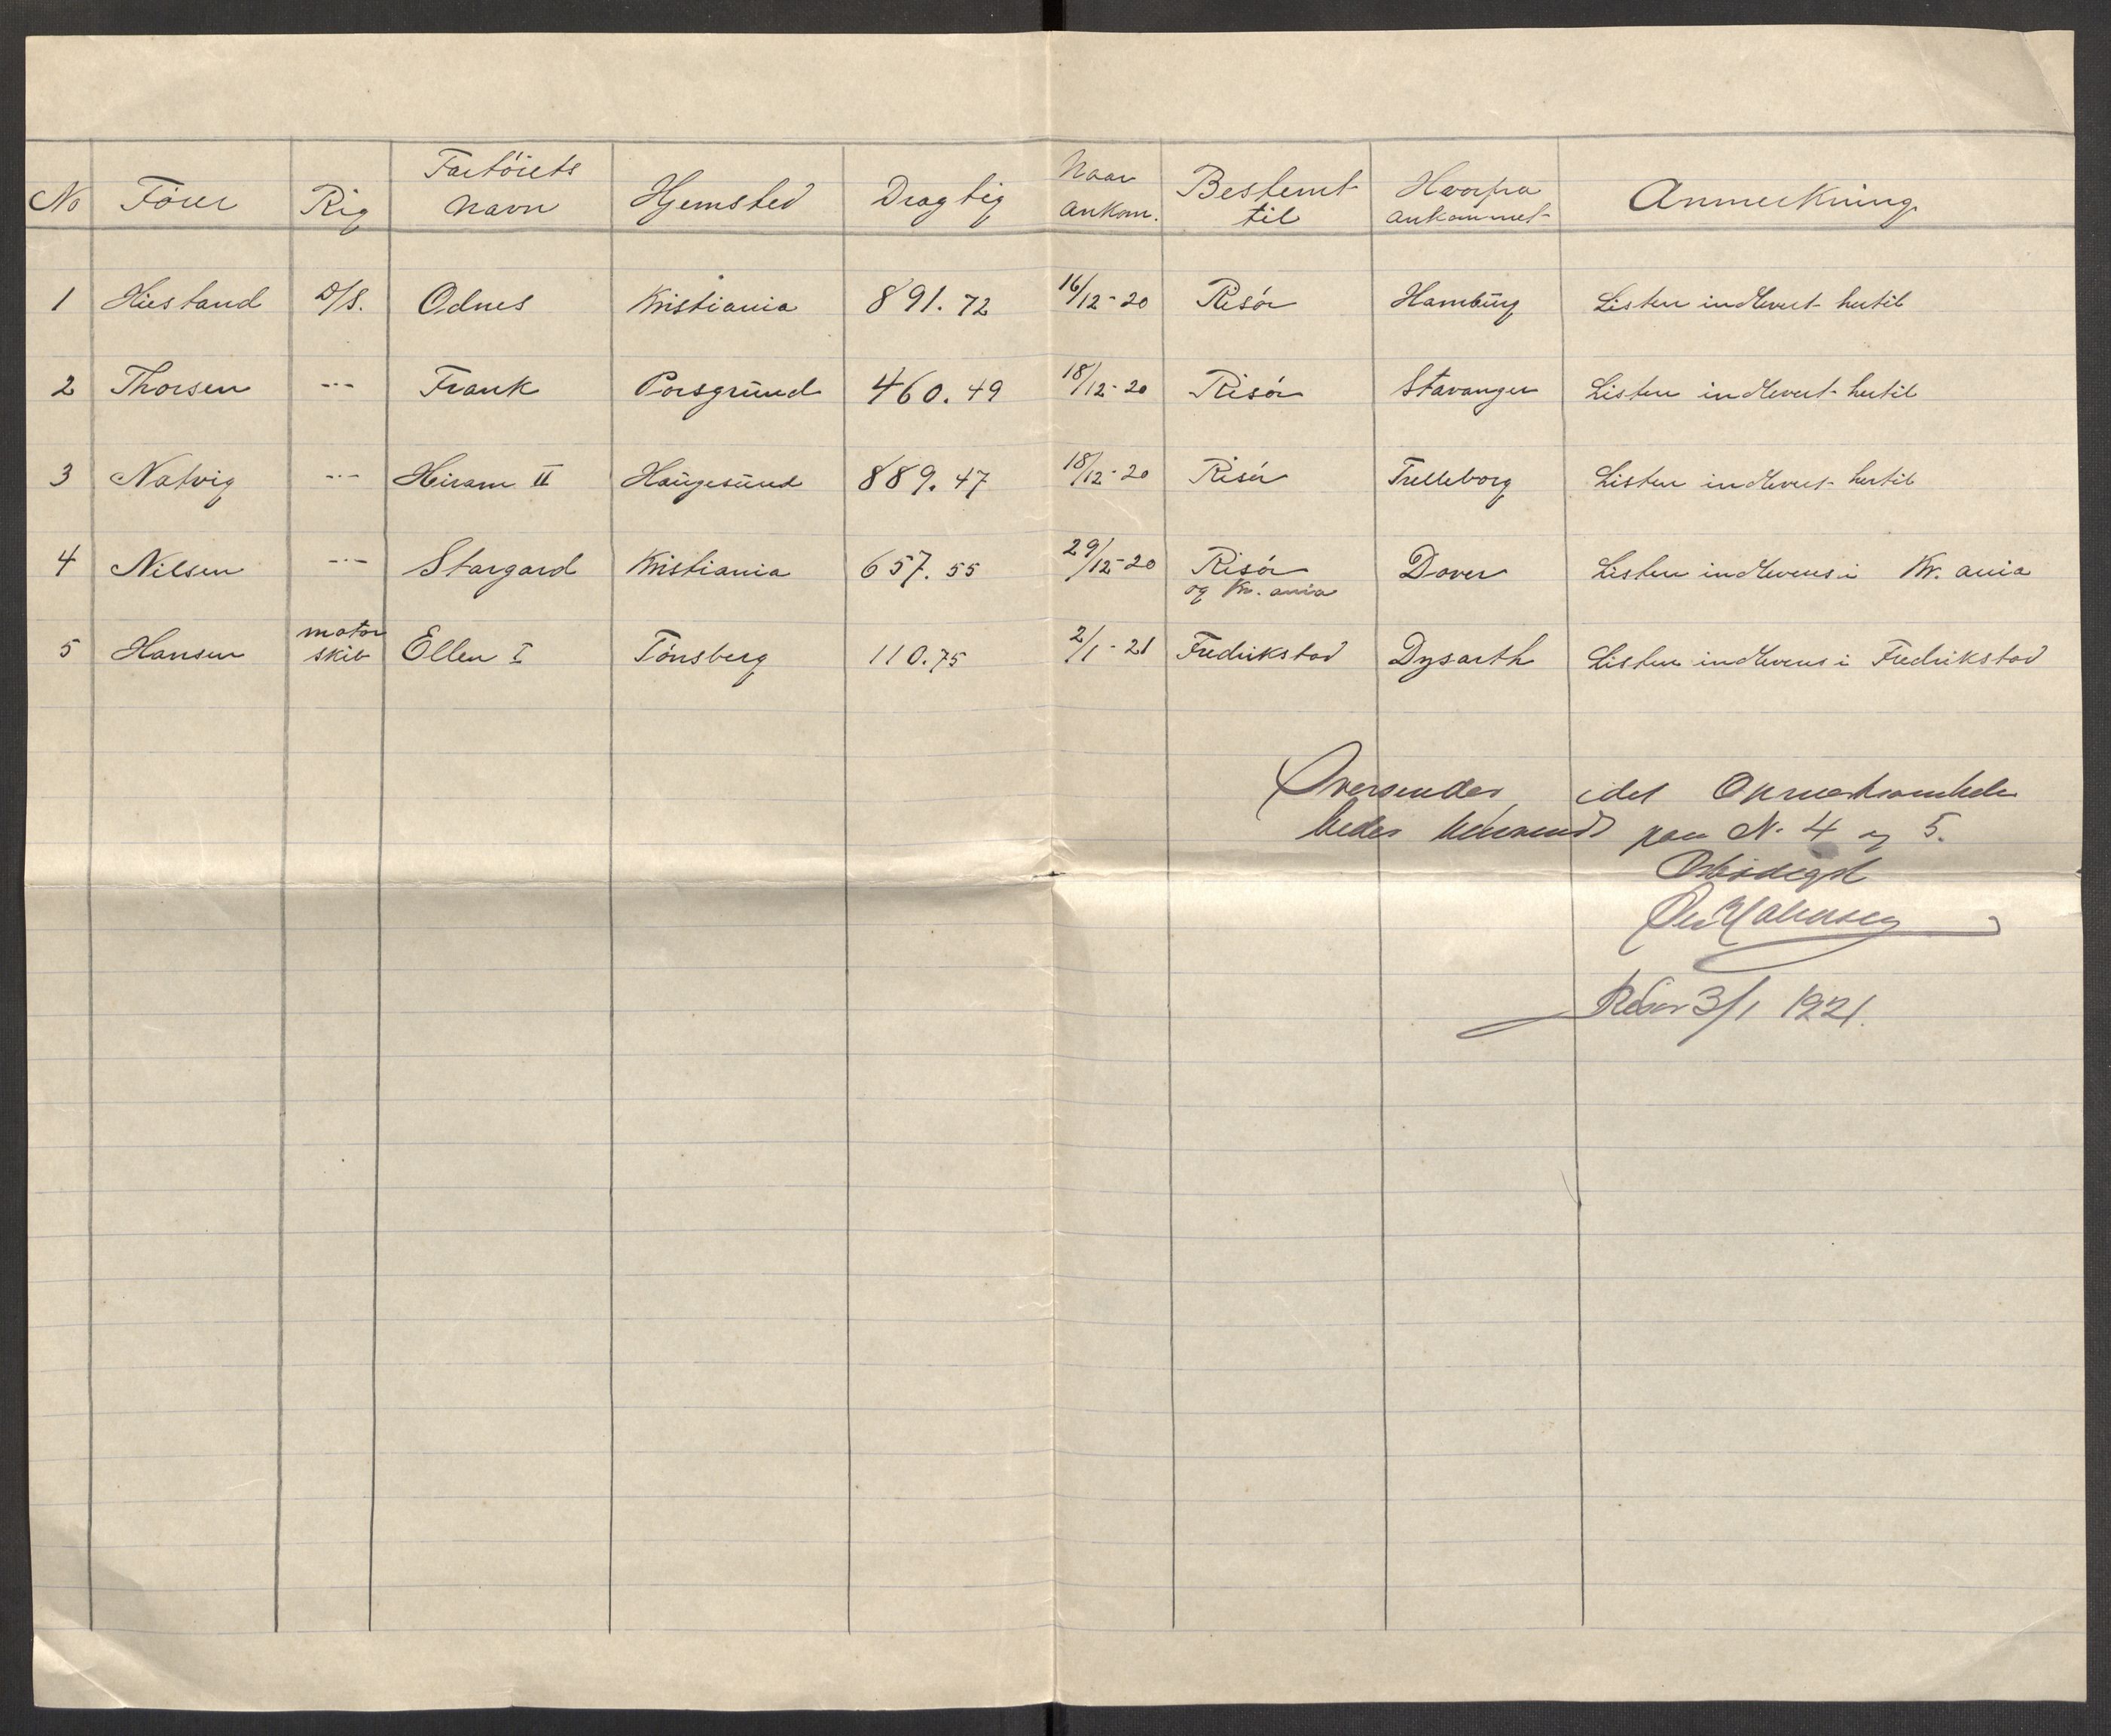 No Fører Rig Fartöiets Navn Hjemsted Drægtig Naar ankom. Bestemt til Hvorfra ankommet Anmerkning
1 Hiestand D/S. Odnes Kristiania 891.72 16/12-20 Risör Hamburg Listen indlevert hertil
2 Thorsen --- Frank Porsgrund 460.49 18/12-20 Risör Stavanger Listen indlevert hertil
3 Natvig --- Heiram II Haugesund 889.47 18/12-20 Risör Trelleborg Listen indlevert hertil
4 Nilsen --- Stargard Kristiania 657.55 29/12-20 Risör og Kr.ania Dover Listen indleveres i Kr.ania
5 Hansen motor skib Ellen I Tönsberg 110.75 2/1-21 Fredrikstad Dysarth Listen indleveres i Fredrikstad
Oversendes, idet Opmerksomheten
bedes henvendt paa N. 4 og 5.
Ærbödigst
Risør 3/1 1921.